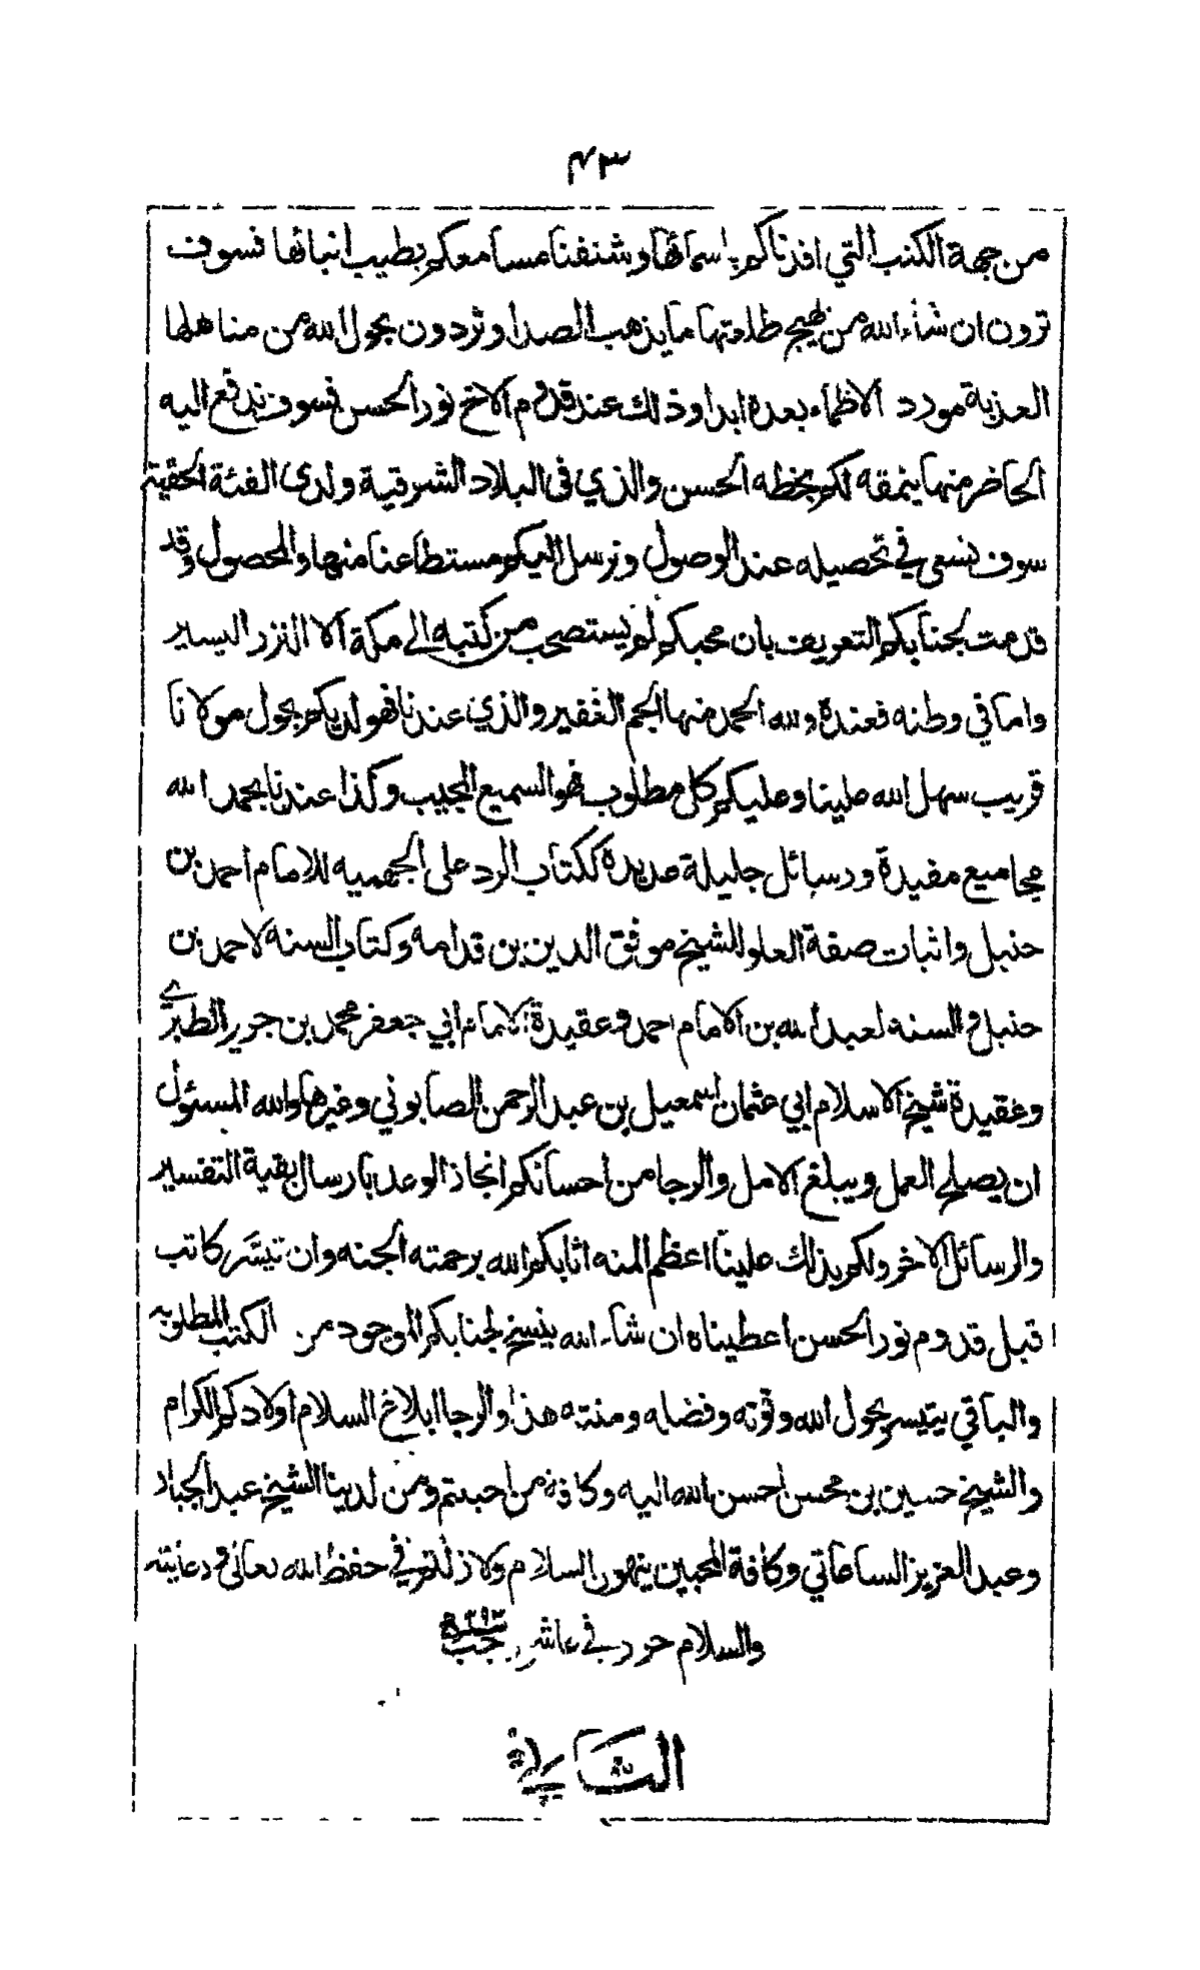 ٤٣
من جهة الكتب التي افدناكم باسمائها وشنفنا مسامعكم بطيب انبائها فسوف
ترون ان شاء الله من بهيج طلعتها ما يذهب الصدا وتردون بحول الله من مناهلها
العذبة مورد الاظماء بعده ابدا وذلك عند قدوم الاخ نور الحسن فسوف ندفع اليه
الحاضر منها ينمقه لكم بخطه الحسن والذي في البلاد الشرقية ولدى الفئة الحقيقة
سوف نسعى في تحصيله عند الوصول ونرسل اليكم مستطاعنا منها والمحصول وقد
قدمت لجنابكم التعريف بان محبكم لم يستصحب من كتبه الى مكة الا النزر اليسير
واما في وطنه فعنده ولله الحمد منها الجم الغفير والذي عندنا فهو لديكم بحول مولانا
قريب سهل الله علينا وعليكم كل مطلوب فهو السميع المجيب وكذا عندنا بحمد الله
مجاميع مفيدة ورسائل جليلة عديدة ككتاب الرد على الجهميه للامام احمد بن
حنبل واثبات صفة العلو للشيخ موفق الدين بن قدامه وكتاب السنه لاحمد بن
حنبل والسنة لعبد الله بن الامام احمد وعقيدة الامام ابي جعفر محمد بن جرير الطبري
وعقيدة شيخ الاسلام ابي عثمان اسمعيل بن عبد الرحمن الصابوني وغيرها والله المسئول
ان يصلح العمل ويبلغ الامل والرجا من احسانكم انجاز الوعد بارسال بقية التفسير
والرسائل الاخر ولكم بذلك علينا اعظم المنه اثابكم الله برحمته الجنه وان تيسّر كاتب
قبل قدوم نور الحسن اعطيناه ان شاء الله ينسخ لجنابكم الموجود من الكتب المطلوبه
والباقي يتيسر بحول الله وقوته وفضله ومنته هذا والرجا ابلاغ السلام اولادكم الكرام
والشيخ حسين بن محسن احسن الله اليه وكافة من احببتم ومن لدينا الشيخ عبد الجبار
وعبد العزيز الساعاتي وكافة المحبين ينهون السلام ولا زلتم في حفظ الله تعالى ورعايته
والسلام حرر في عاشر رجب
الثاني